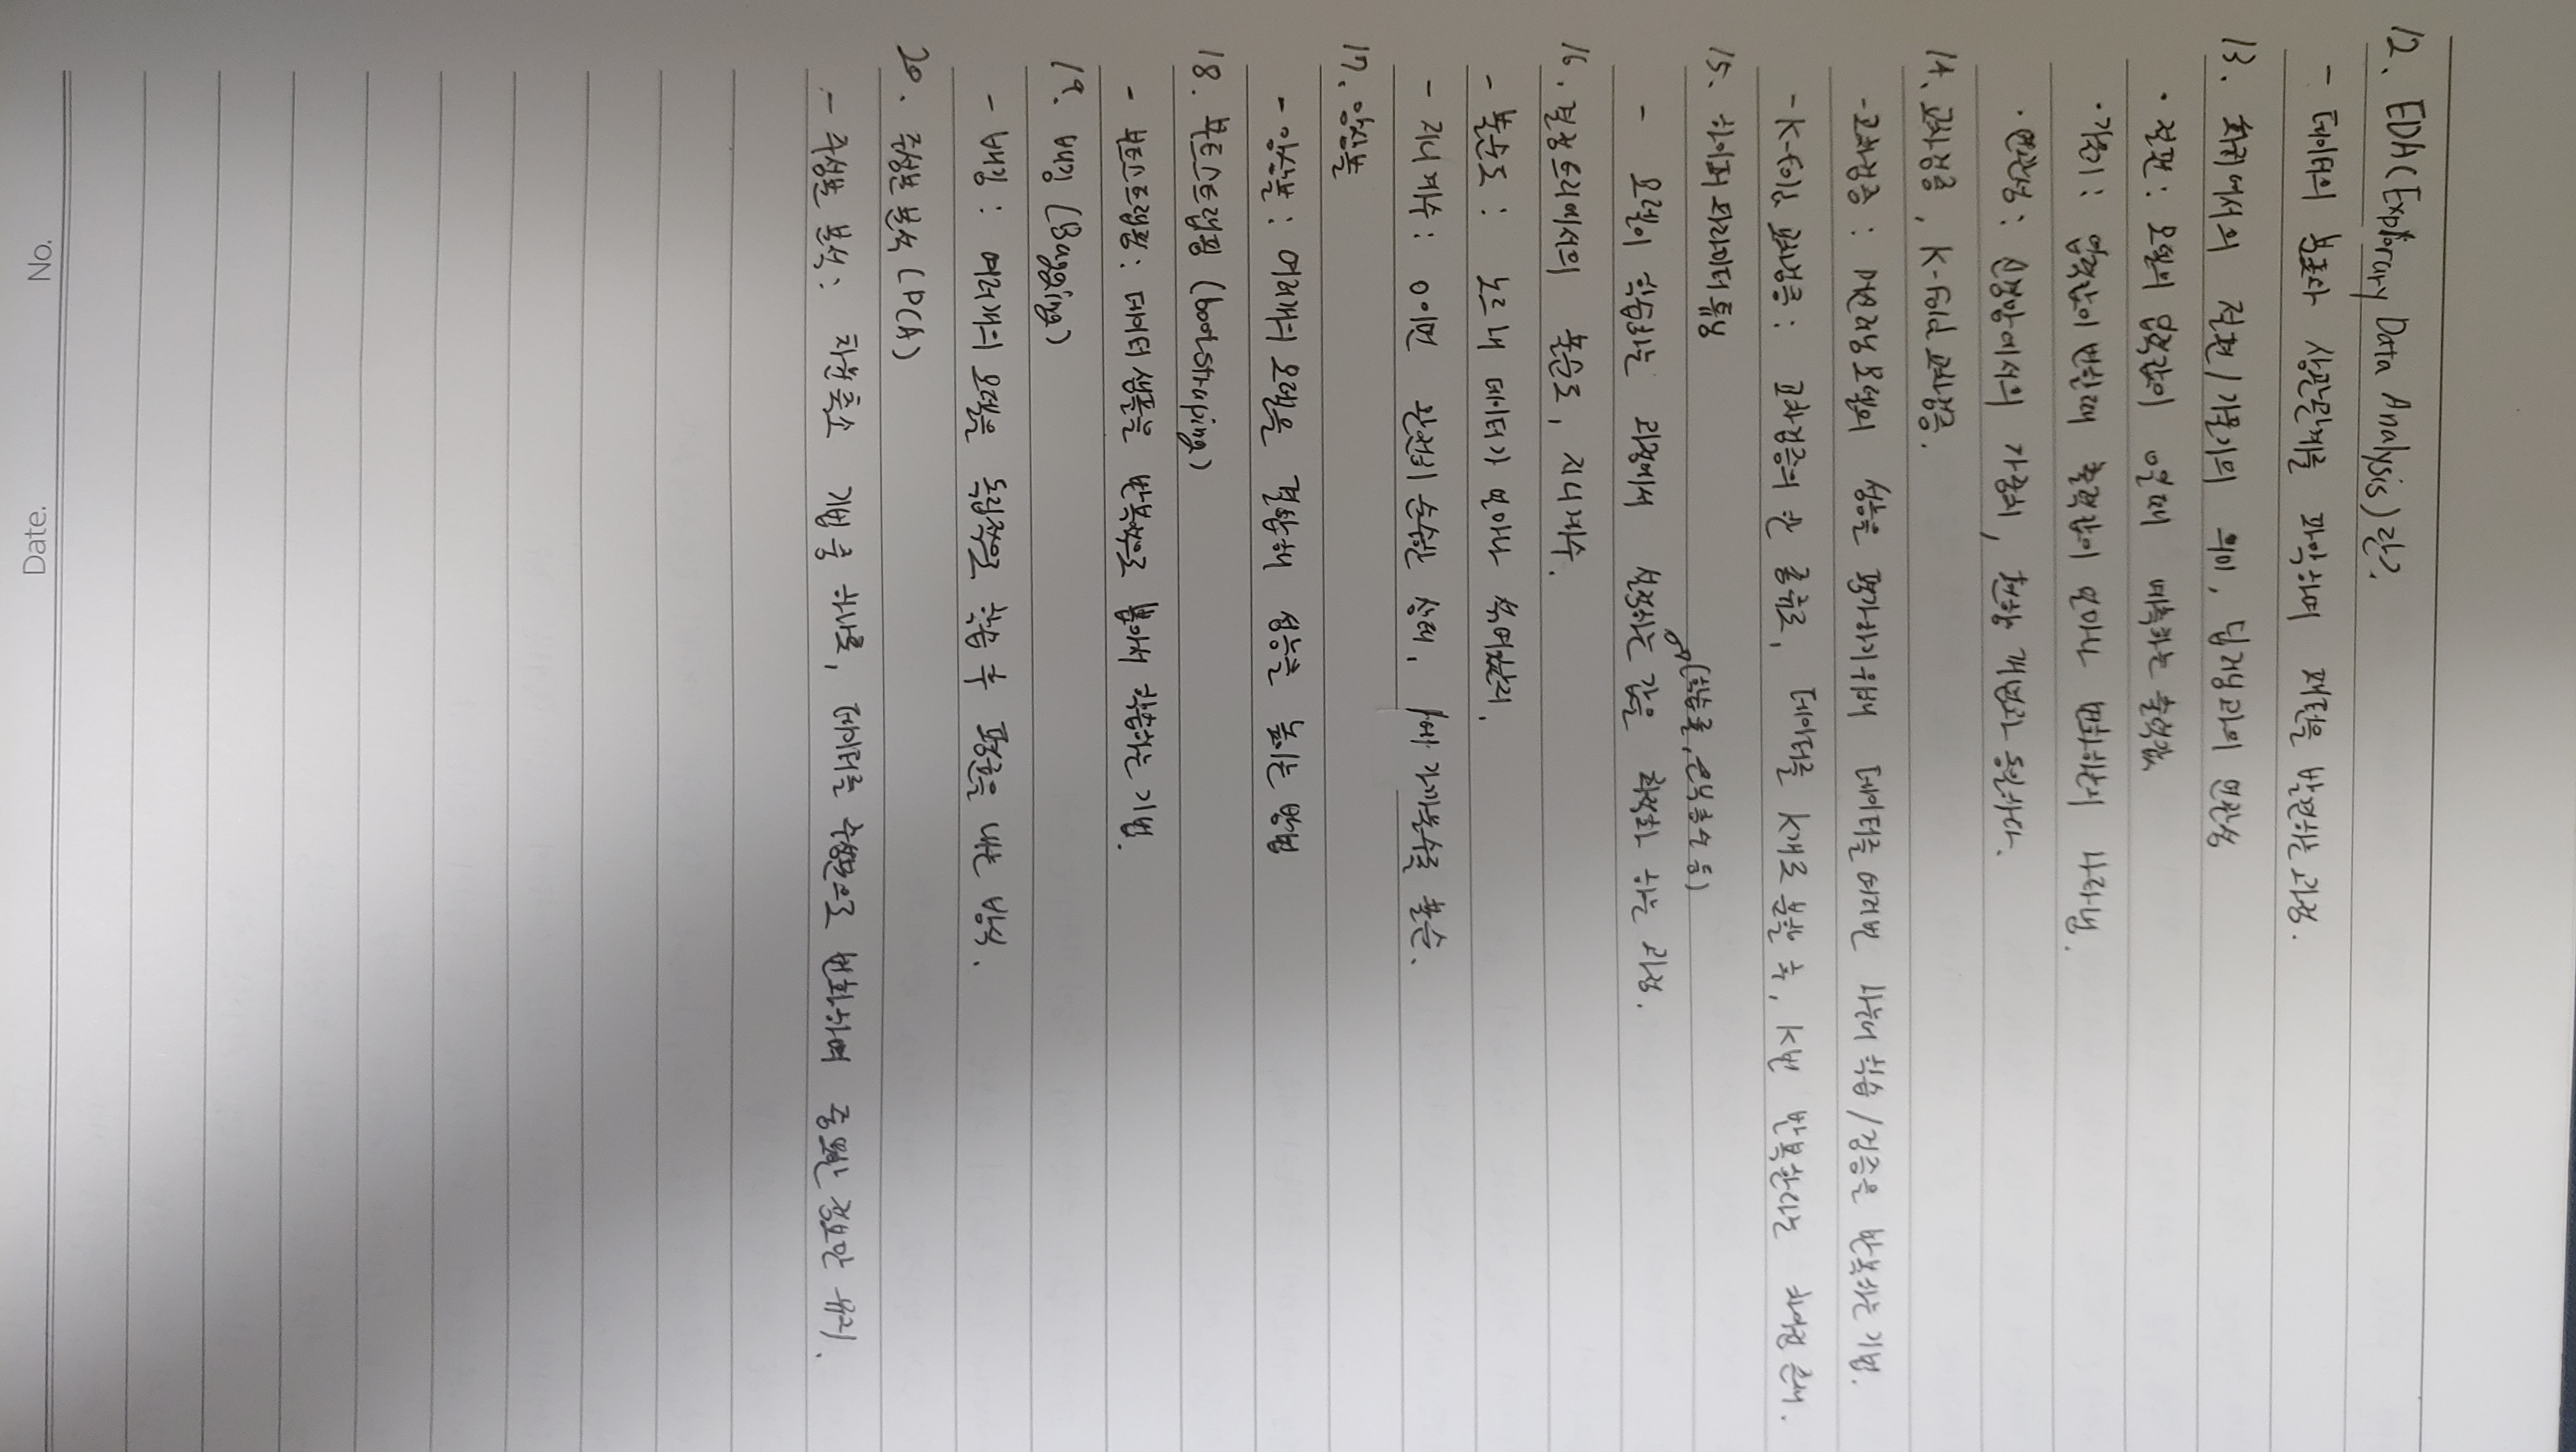 12. EDA(Explorary Data Analysis)란?
- 데이터의 분포와 상관관계를 파악하며 패턴을 발견하는 과정.
13. 회귀에서의 절편/기울기의 의미, 딥러닝과의 연관성
· 절편: 모델의 입력값이 0일때 예측하는 출력값
· 기울기: 입력값이 변할때 출력값이 얼마나 변화하는지 나타냄.
· 연관성: 신경망에서의 가중치, 편향 개념과 동일하다.
14. 교차검증, K-Fold 교차검증.
- 교차검증: 머신러닝 모델의 성능을 평가하기위해 데이터를 여러번 나눠 학습/검증을 반복하는 기법.
- K-fold 교차검증: 교차검증의 한 종류로, 데이터를 K개로 분할 후, K번 반복한다는 차이점 존재.
15. 하이퍼 파라미터 튜닝
(학습률, 은닉층수 등)
- 모델이 학습하는 과정에서 설정하는 값을 최적화 하는 과정.
16. 결정트리에서의 불순도, 지니계수.
- 불순도: 노드 내 데이터가 얼마나 섞여있는지.
- 지니계수: 0이면 완전히 순수한 상태, 1에 가까울수록 불순.
17. 앙상블
- 앙상블: 여러개의 모델을 결합해 성능을 높이는 방법
18. 부트스트랩핑 (bootstraping)
- 부트스트랩핑: 데이터 샘플을 반복적으로 뽑아서 학습하는 기법.
19. 배깅 (Bagging)
- 배깅: 여러개의 모델을 독립적으로 학습 후 평균을 내는 방식.
20. 주성분 분석 (PCA)
- 주성분 분석: 차원축소 기법 중 하나로, 데이터를 주성분으로 변화하여 중요한 정보만 유지.
No. Date.